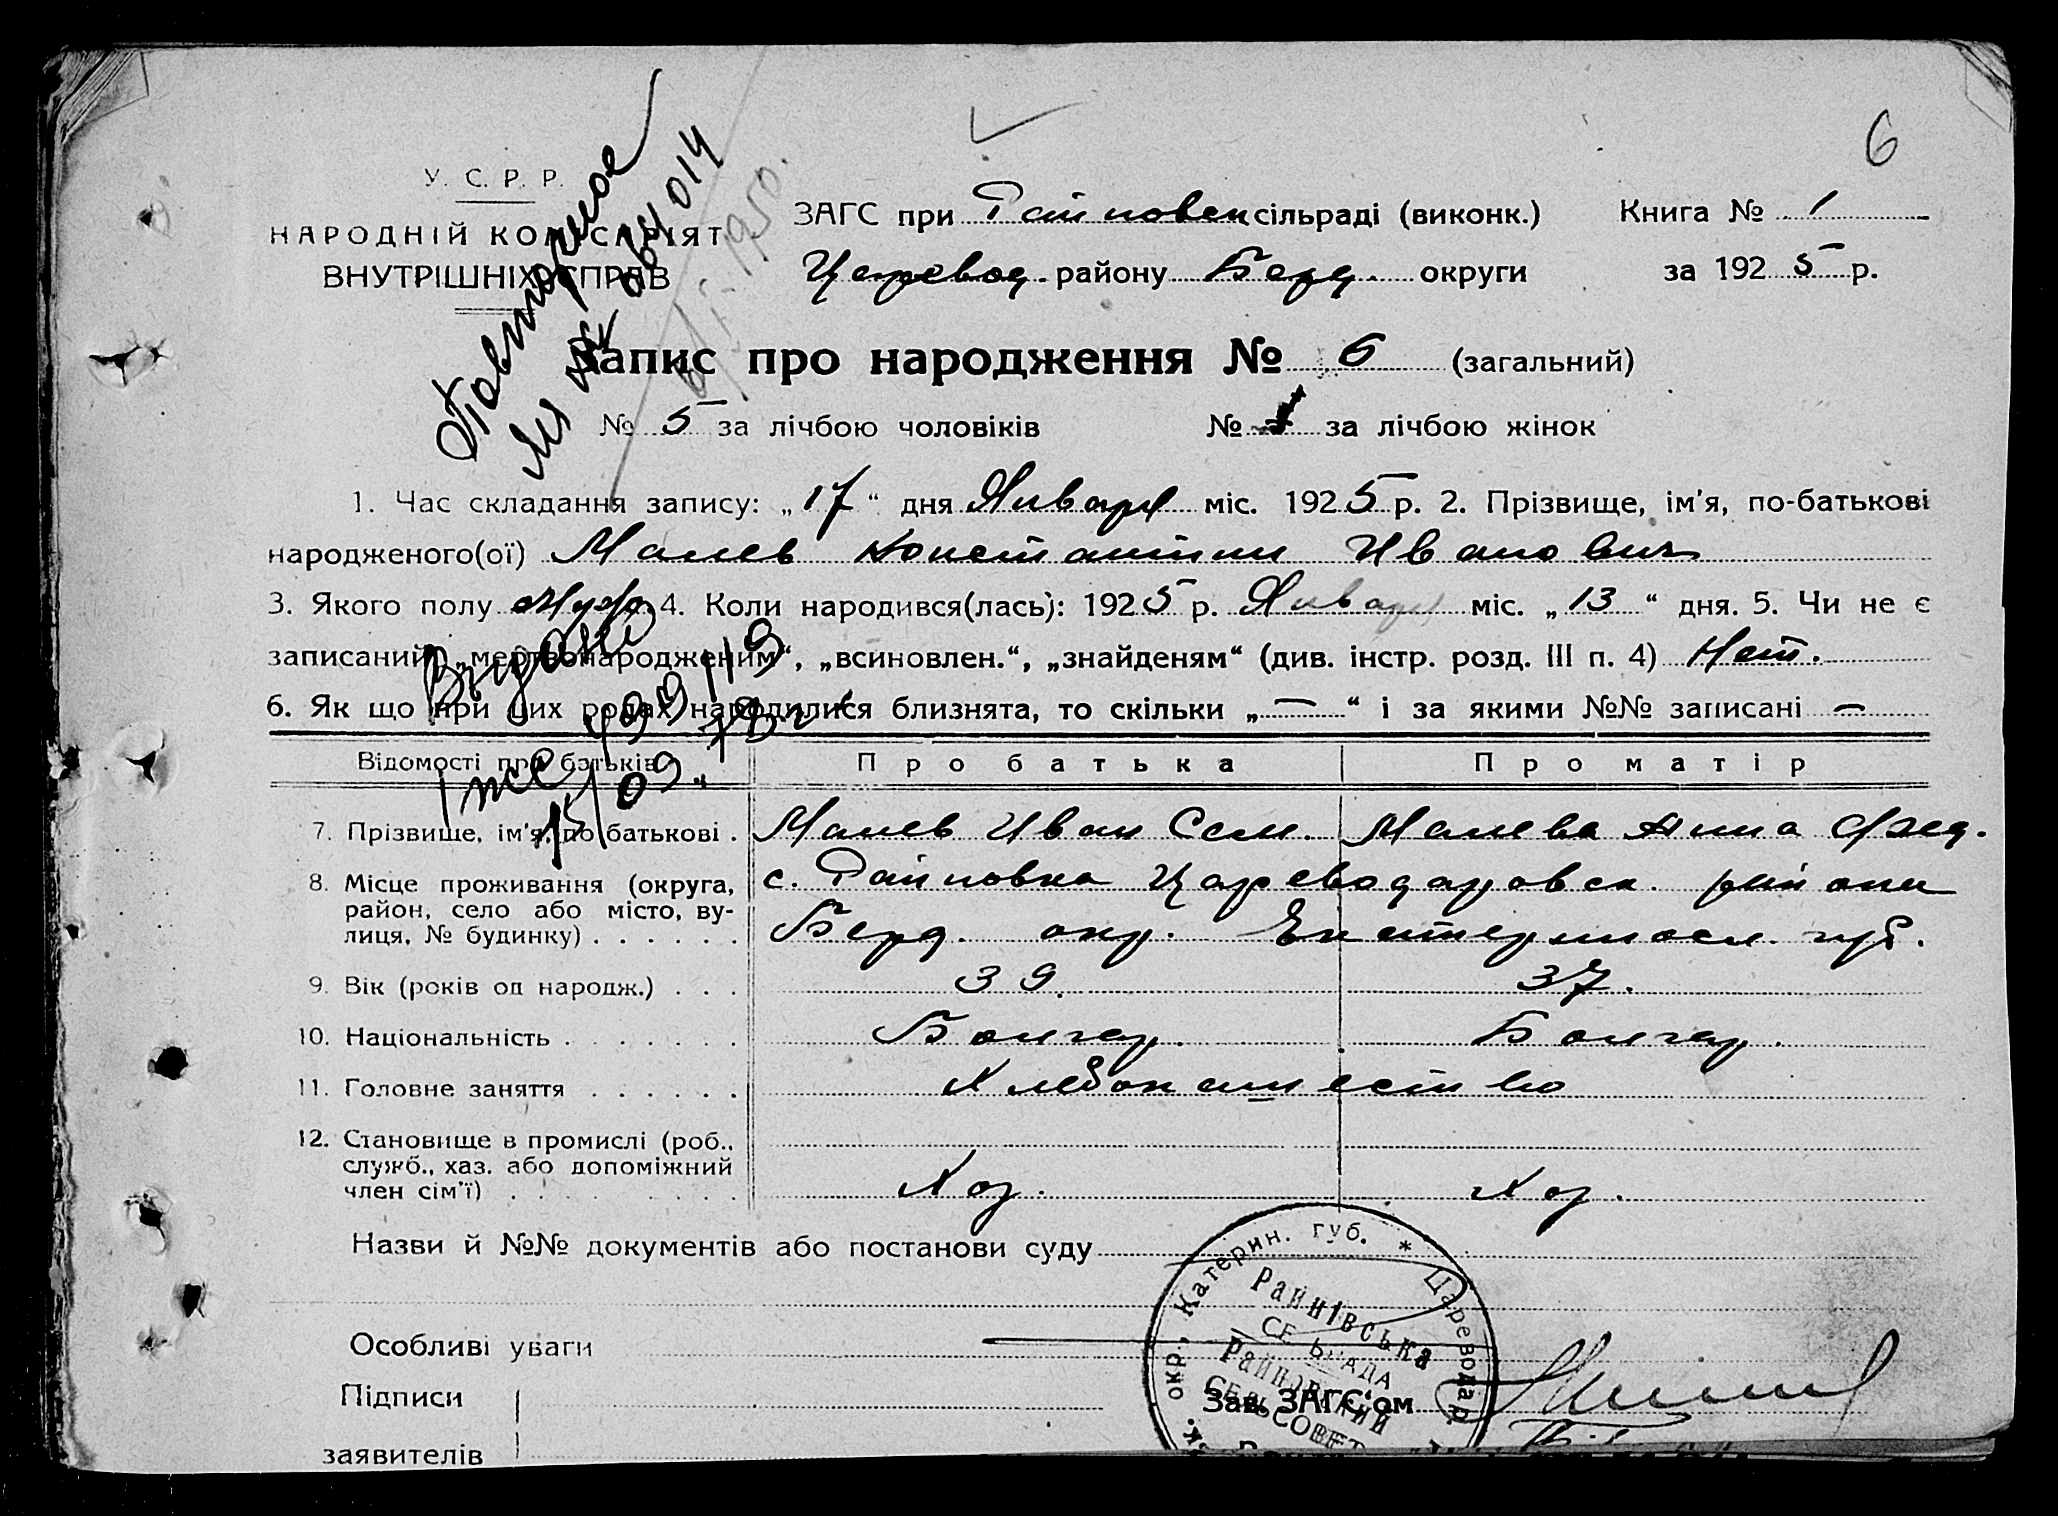 6
У. С. Р. Р.
НАРОДНІЙ КОМІСАРІЯТ
ВНУТРІШНІХ СПРАВ
ЗАГС при Райновск сільраді (виконк.) Книга № 1
Царевод. району Берд. округи за 1925 р.
Повторное
064014
1950.
Запис про народження № 6 (загальний)
№ 5 за лічбою чоловіків № за лічбою жінок
1. Час складання запису: „17“ дня Январ міс. 1925 р. 2. Прізвище, ім'я, по-батькові
народженого(ої) Малев Константин Иванович
3. Якого полу Муж. 4. Коли народився(лась): 1925 р. Январ міс. „13“ дня. 5. Чи не є
записаний „мертвонародженим“, „всиновлен.“, „знайденям“ (див. інстр. розд. III п. 4) Нет.
6. Як що при цих родах народилися близнята, то скільки „—“ і за якими №№ записані —
Видано
Відомості про батьків Про батька Про матір
7. Прізвище, ім'я, по батькові . Малев Иван Сем. Малева Анна Фед.
8. Місце проживання (округа, с. Райновка Цареводаровск. района
район, село або місто, ву-
лиця, № будинку) . . . . . . Берд. окр. Екатериносл. губ.
9. Вік (років од народж.) . . . 39. 37.
10. Національність . . . . . . . Болгар. Болгар.
11. Головне заняття . . . . . . Хлебопашество
12. Становище в промислі (роб.,
служб., хаз. або допоміжний
член сім'ї) . . . . . . . . Хоз. Хоз.
Назви й №№ документів або постанови суду
окр., Катерин. губ. * Цареводар.
Райнівська
СЕЛЬРАДА
Райновский
СЕЛЬСОВЕТ
Особливі уваги
Підписи Зав. ЗАГС'ом
заявителів